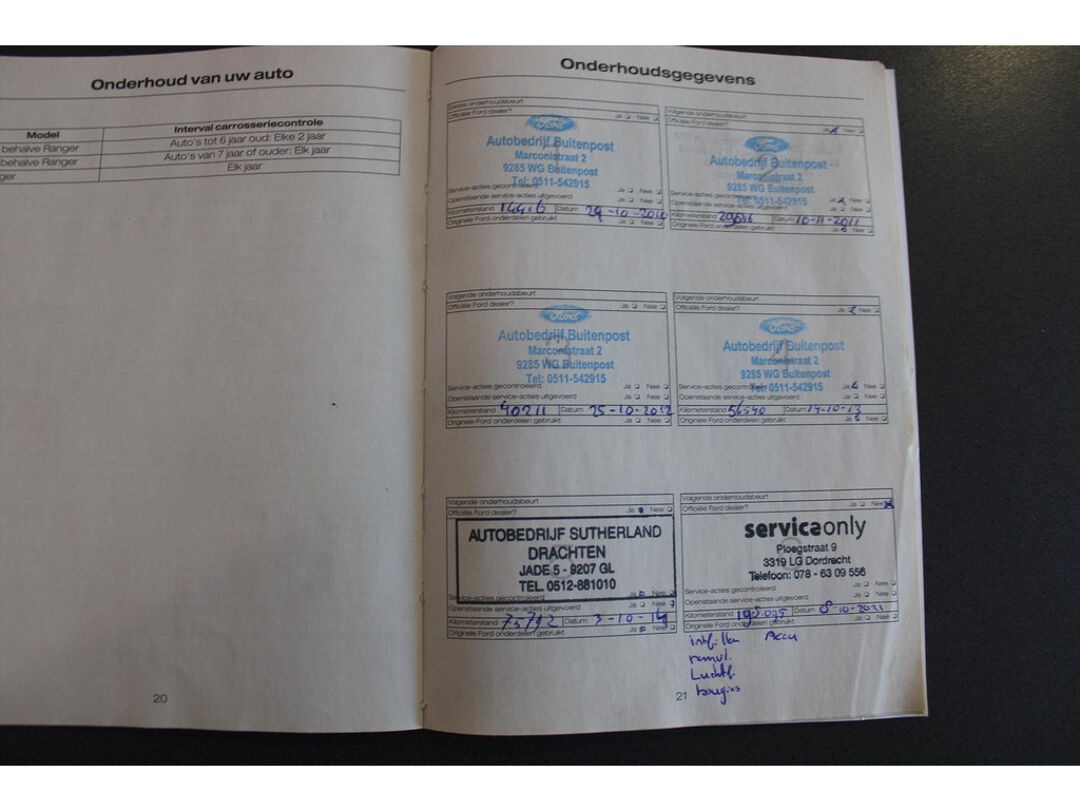 Onderhoud van uw auto
Model Interval carrosseriecontrole
behalve Ranger Auto's tot 6 jaar oud: Elke 2 jaar
behalve Ranger Auto's van 7 jaar of ouder: Elk jaar
ger Elk jaar
20
Onderhoudsgegevens
Eerste onderhoudsbeurt
Officiële Ford dealer? Ja Nee
Ford
Autobedrijf Buitenpost
Marconistraat 2
9285 WG Buitenpost
Tel: 0511-542915
Service-acties gecontroleerd Ja Nee
Openstaande service-acties uitgevoerd Ja Nee
Kilometerstand 14416 Datum 29-10-2010
Originele Ford onderdelen gebruikt Ja Nee
Volgende onderhoudsbeurt
Officiële Ford dealer? Ja Nee
Ford
Autobedrijf Buitenpost
Marconistraat 2
9285 WG Buitenpost
Tel: 0511-542915
Service-acties gecontroleerd Ja Nee
Openstaande service-acties uitgevoerd Ja Nee
Kilometerstand Datum 10-11-2011
Originele Ford onderdelen gebruikt Ja Nee
Volgende onderhoudsbeurt
Officiële Ford dealer? Ja Nee
Ford
3
Autobedrijf Buitenpost
Marconistraat 2
9285 WG Buitenpost
Tel: 0511-542915
Service-acties gecontroleerd Ja Nee
Openstaande service-acties uitgevoerd Ja Nee
Kilometerstand 40211 Datum 25-10-2012
Originele Ford onderdelen gebruikt Ja Nee
Volgende onderhoudsbeurt
Officiële Ford dealer? Ja Nee
Ford
4
Autobedrijf Buitenpost
Marconistraat 2
9285 WG Buitenpost
Tel: 0511-542915
Service-acties gecontroleerd Ja Nee
Openstaande service-acties uitgevoerd Ja Nee
Kilometerstand 56540 Datum 14-10-13
Originele Ford onderdelen gebruikt Ja Nee
Volgende onderhoudsbeurt
Officiële Ford dealer? Ja Nee
AUTOBEDRIJF SUTHERLAND
DRACHTEN
JADE 5 - 9207 GL
TEL. 0512-881010
Service-acties gecontroleerd Ja Nee
Openstaande service-acties uitgevoerd Ja Nee
Kilometerstand 75792 Datum 3-10-14
Originele Ford onderdelen gebruikt Ja Nee
Volgende onderhoudsbeurt
Officiële Ford dealer? Ja Nee
servicaonly
Ploegstraat 9
3319 LG Dordrecht
Telefoon: 078 - 63 09 556
Service-acties gecontroleerd Ja Nee
Openstaande service-acties uitgevoerd Ja Nee
Kilometerstand 198.095 Datum 8-10-2021
Originele Ford onderdelen gebruikt Ja Nee
Accu
Luchtf.
bougies
21